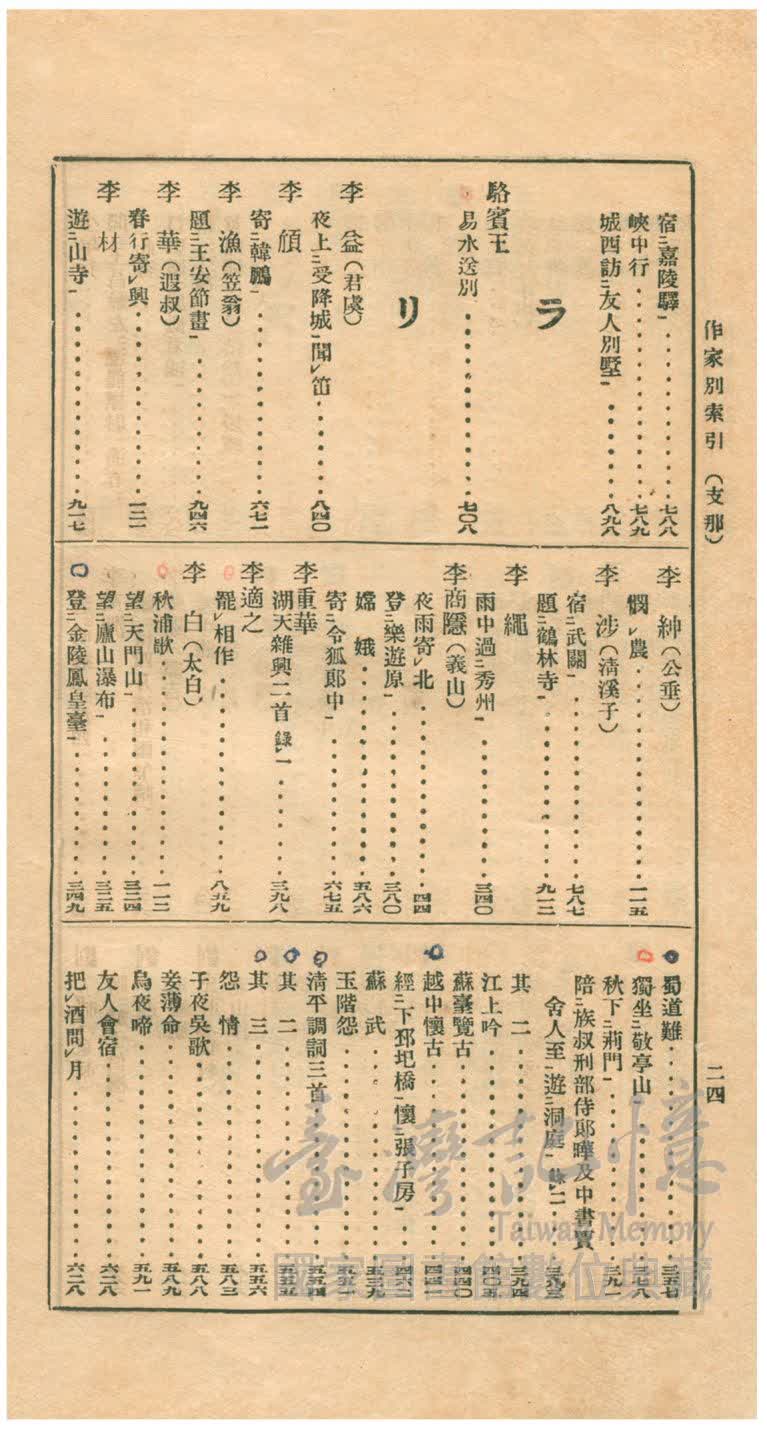 作家別索引 (支那)
二四
宿ニ嘉陵驛一・・・・・・七八八
峽中行・・・・・・七八九
城西訪ニ友人別墅一・・・・・・八九八
ラ
駱賓王
易水送別・・・・・・七〇八
リ
李益(君虞)
夜上ニ受降城一聞レ笛・・・・・・八四〇
李頎
寄ニ韓鵬一・・・・・・六七一
李漁(笠翁)
題ニ王安節畫一・・・・・・九四六
李華(遐叔)
春行寄レ興・・・・・・一三一
李材
遊ニ山寺一・・・・・・九一七
李紳(公垂)
憫レ農・・・・・・一一五
李涉(清溪子)
宿ニ武關一・・・・・・七八七
題ニ鶴林寺一・・・・・・九一二
李繩
雨中過ニ秀州一・・・・・・三四〇
李商隱(義山)
夜雨寄レ北・・・・・・四四
登ニ樂遊原一・・・・・・三八〇
嫦娥・・・・・・五八六
寄ニ令狐郎中一・・・・・・六七五
李重華
湖天雜興二首 錄レ一・・・・・・三九八
李適之
罷レ相作・・・・・・八五九
李白(太白)
秋浦歌・・・・・・一一二
望ニ天門山一・・・・・・三二四
望ニ廬山瀑布一・・・・・・三二五
登ニ金陵鳳皇臺一・・・・・・三四九
蜀道難・・・・・・三五七
獨坐ニ敬亭山一・・・・・・三七八
秋下ニ荊門一・・・・・・三九一
陪ニ族叔刑部侍郎曄及中書賈
舍人至一遊ニ洞庭一 錄レ二・・・・・・三九三
其二・・・・・・三九四
江上吟・・・・・・四〇五
蘇臺覽古・・・・・・四四〇
越中懷古・・・・・・四四一
經ニ下邳圯橋一懷ニ張子房一・・・・・・四六二
蘇武・・・・・・五三九
玉階怨・・・・・・五五一
清平調詞三首・・・・・・五五四
其二・・・・・・五五五
其三・・・・・・五五六
怨情・・・・・・五八三
子夜吳歌・・・・・・五八八
妾薄命・・・・・・五八九
烏夜啼・・・・・・五九一
友人會宿・・・・・・六二八
把レ酒問レ月・・・・・・六二八
臺灣記憶
Taiwan Memory
國家圖書館數位典藏